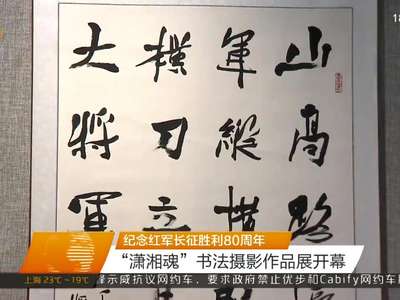 山高路
軍縱橫
橫刀立
大將軍
纪念红军长征胜利80周年
“潇湘魂”书法摄影作品展开幕
上海 23℃~19℃
示威抗议网约车，要求政府禁止优步和Cabify网约车